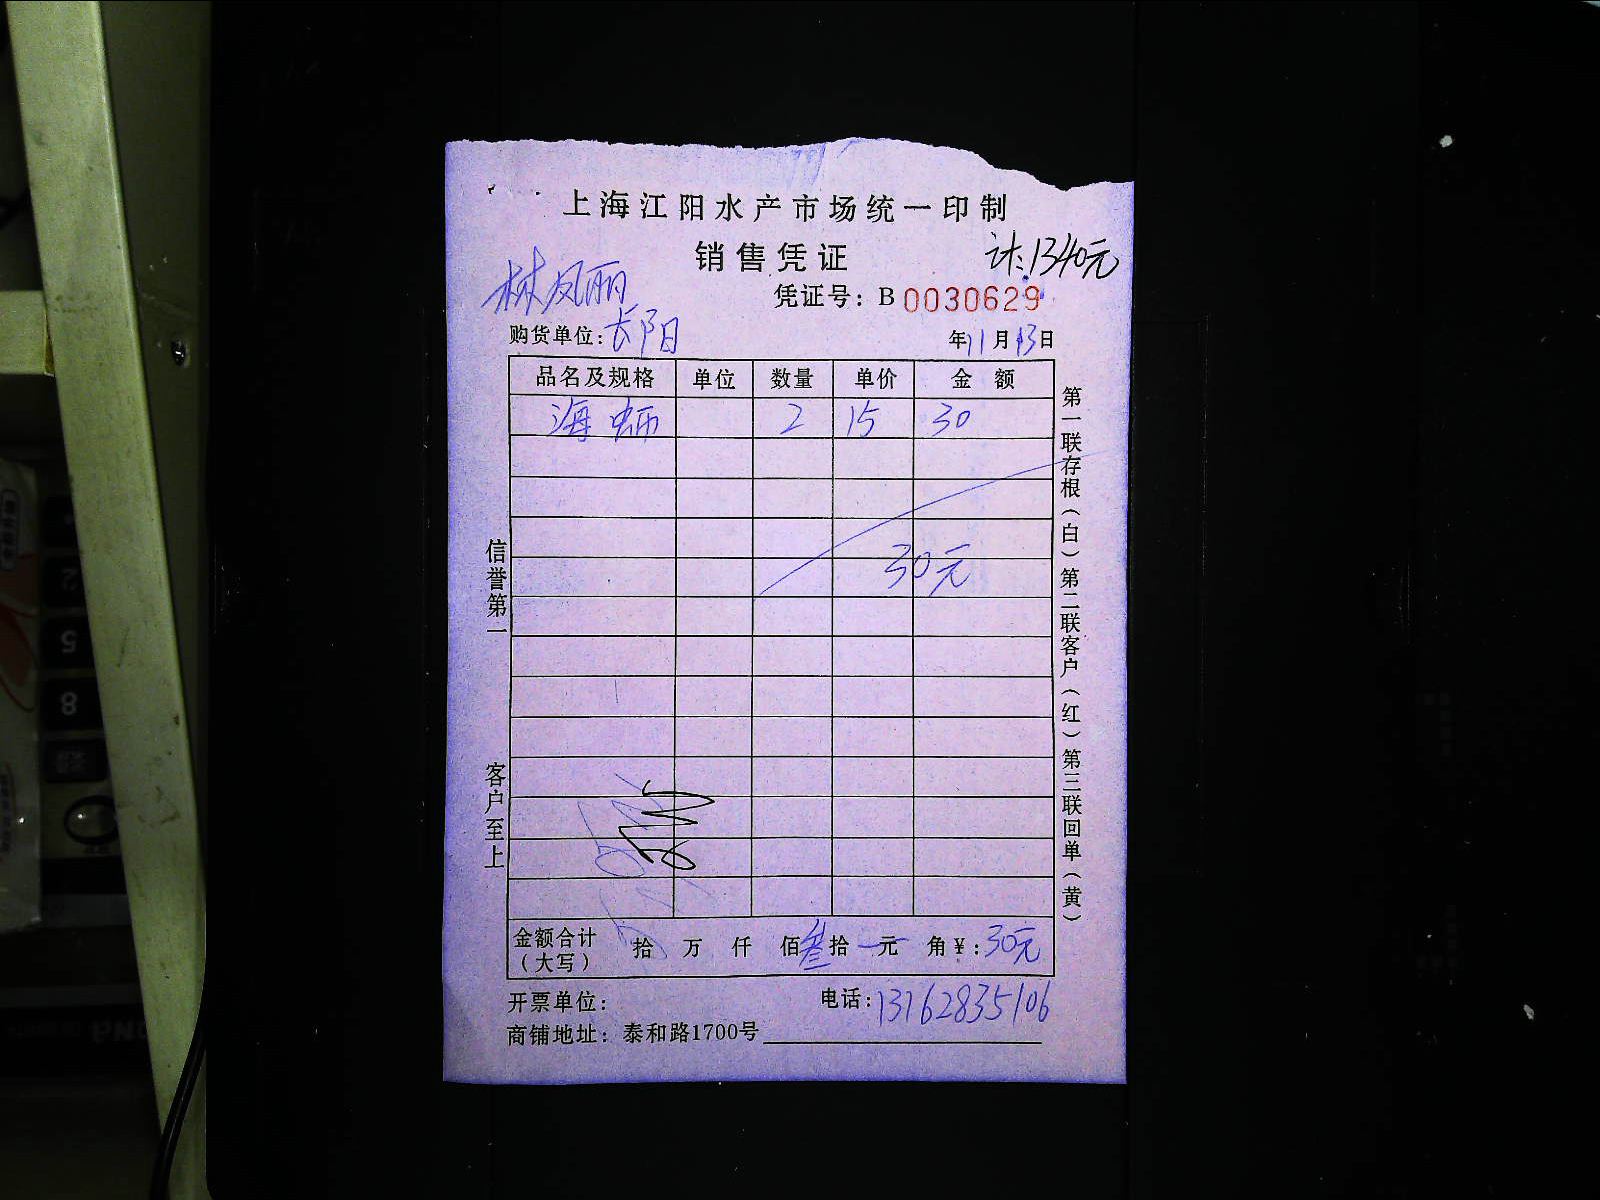 上海江阳水产市场统一印制
销售凭证
计:1340元
林凤丽
凭证号：B 0030629
购货单位：长阳
年11月13日
品名及规格 单位 数量 单价 金额
海蛎 2 15 30
30元
信誉第一
客户至上
第一联存根（白）第二联客户（红）第三联回单（黄）
金额合计（大写） 拾 万 仟 佰叁拾 元 角￥：30元
开票单位：
电话：13162835106
商铺地址：泰和路1700号